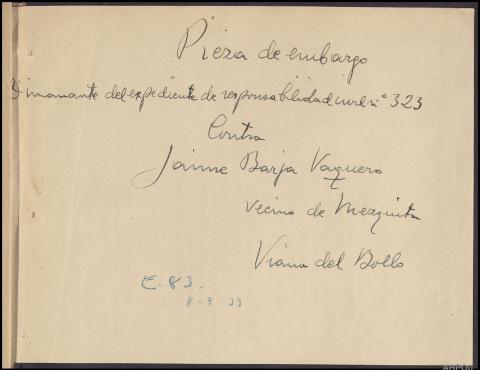 Pieza de embargo
Dimanante del expediente de responsabilidad civil nº 323
Contra
Jaime Barja Vaquero
vecino de Mezquita
Viana del Bollo
E-83.
8-8-39
AHPOU